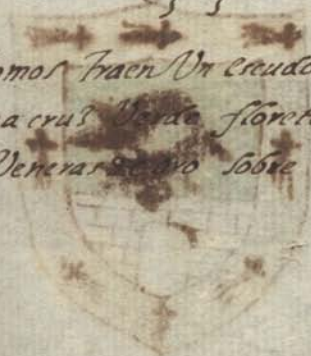 omos traen Vn escudo
a cruz Verde florete
Veneras de oro sobre